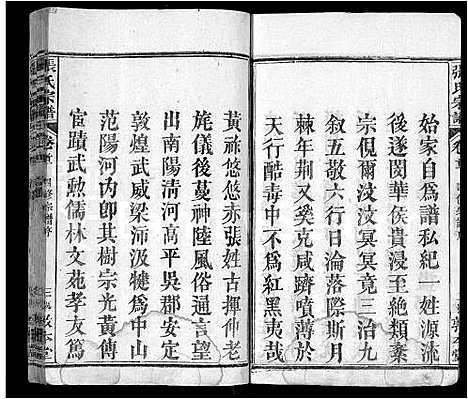 張氏宗譜
始家自為譜私紀一姓源流
後遂閔華侯貴浸至絕類棄
宗侃爾汶汶冥冥竟三治九
叙五敬六行日淪落際斯月
棘年荆又奚克躋噴薄於
天行酷毒中不為紅黑夷哉
黃祚悠悠赤張姓古揮仲老
旄儀後蔓神陸風俗通言望
出南陽清河高平吳郡安定
敦煌武威梁沛汲犍為中山
范陽河內卽其樹宗光黃傳
宦蹟武勳儒林文苑孝友篤
張氏宗譜
卷首
敦本堂